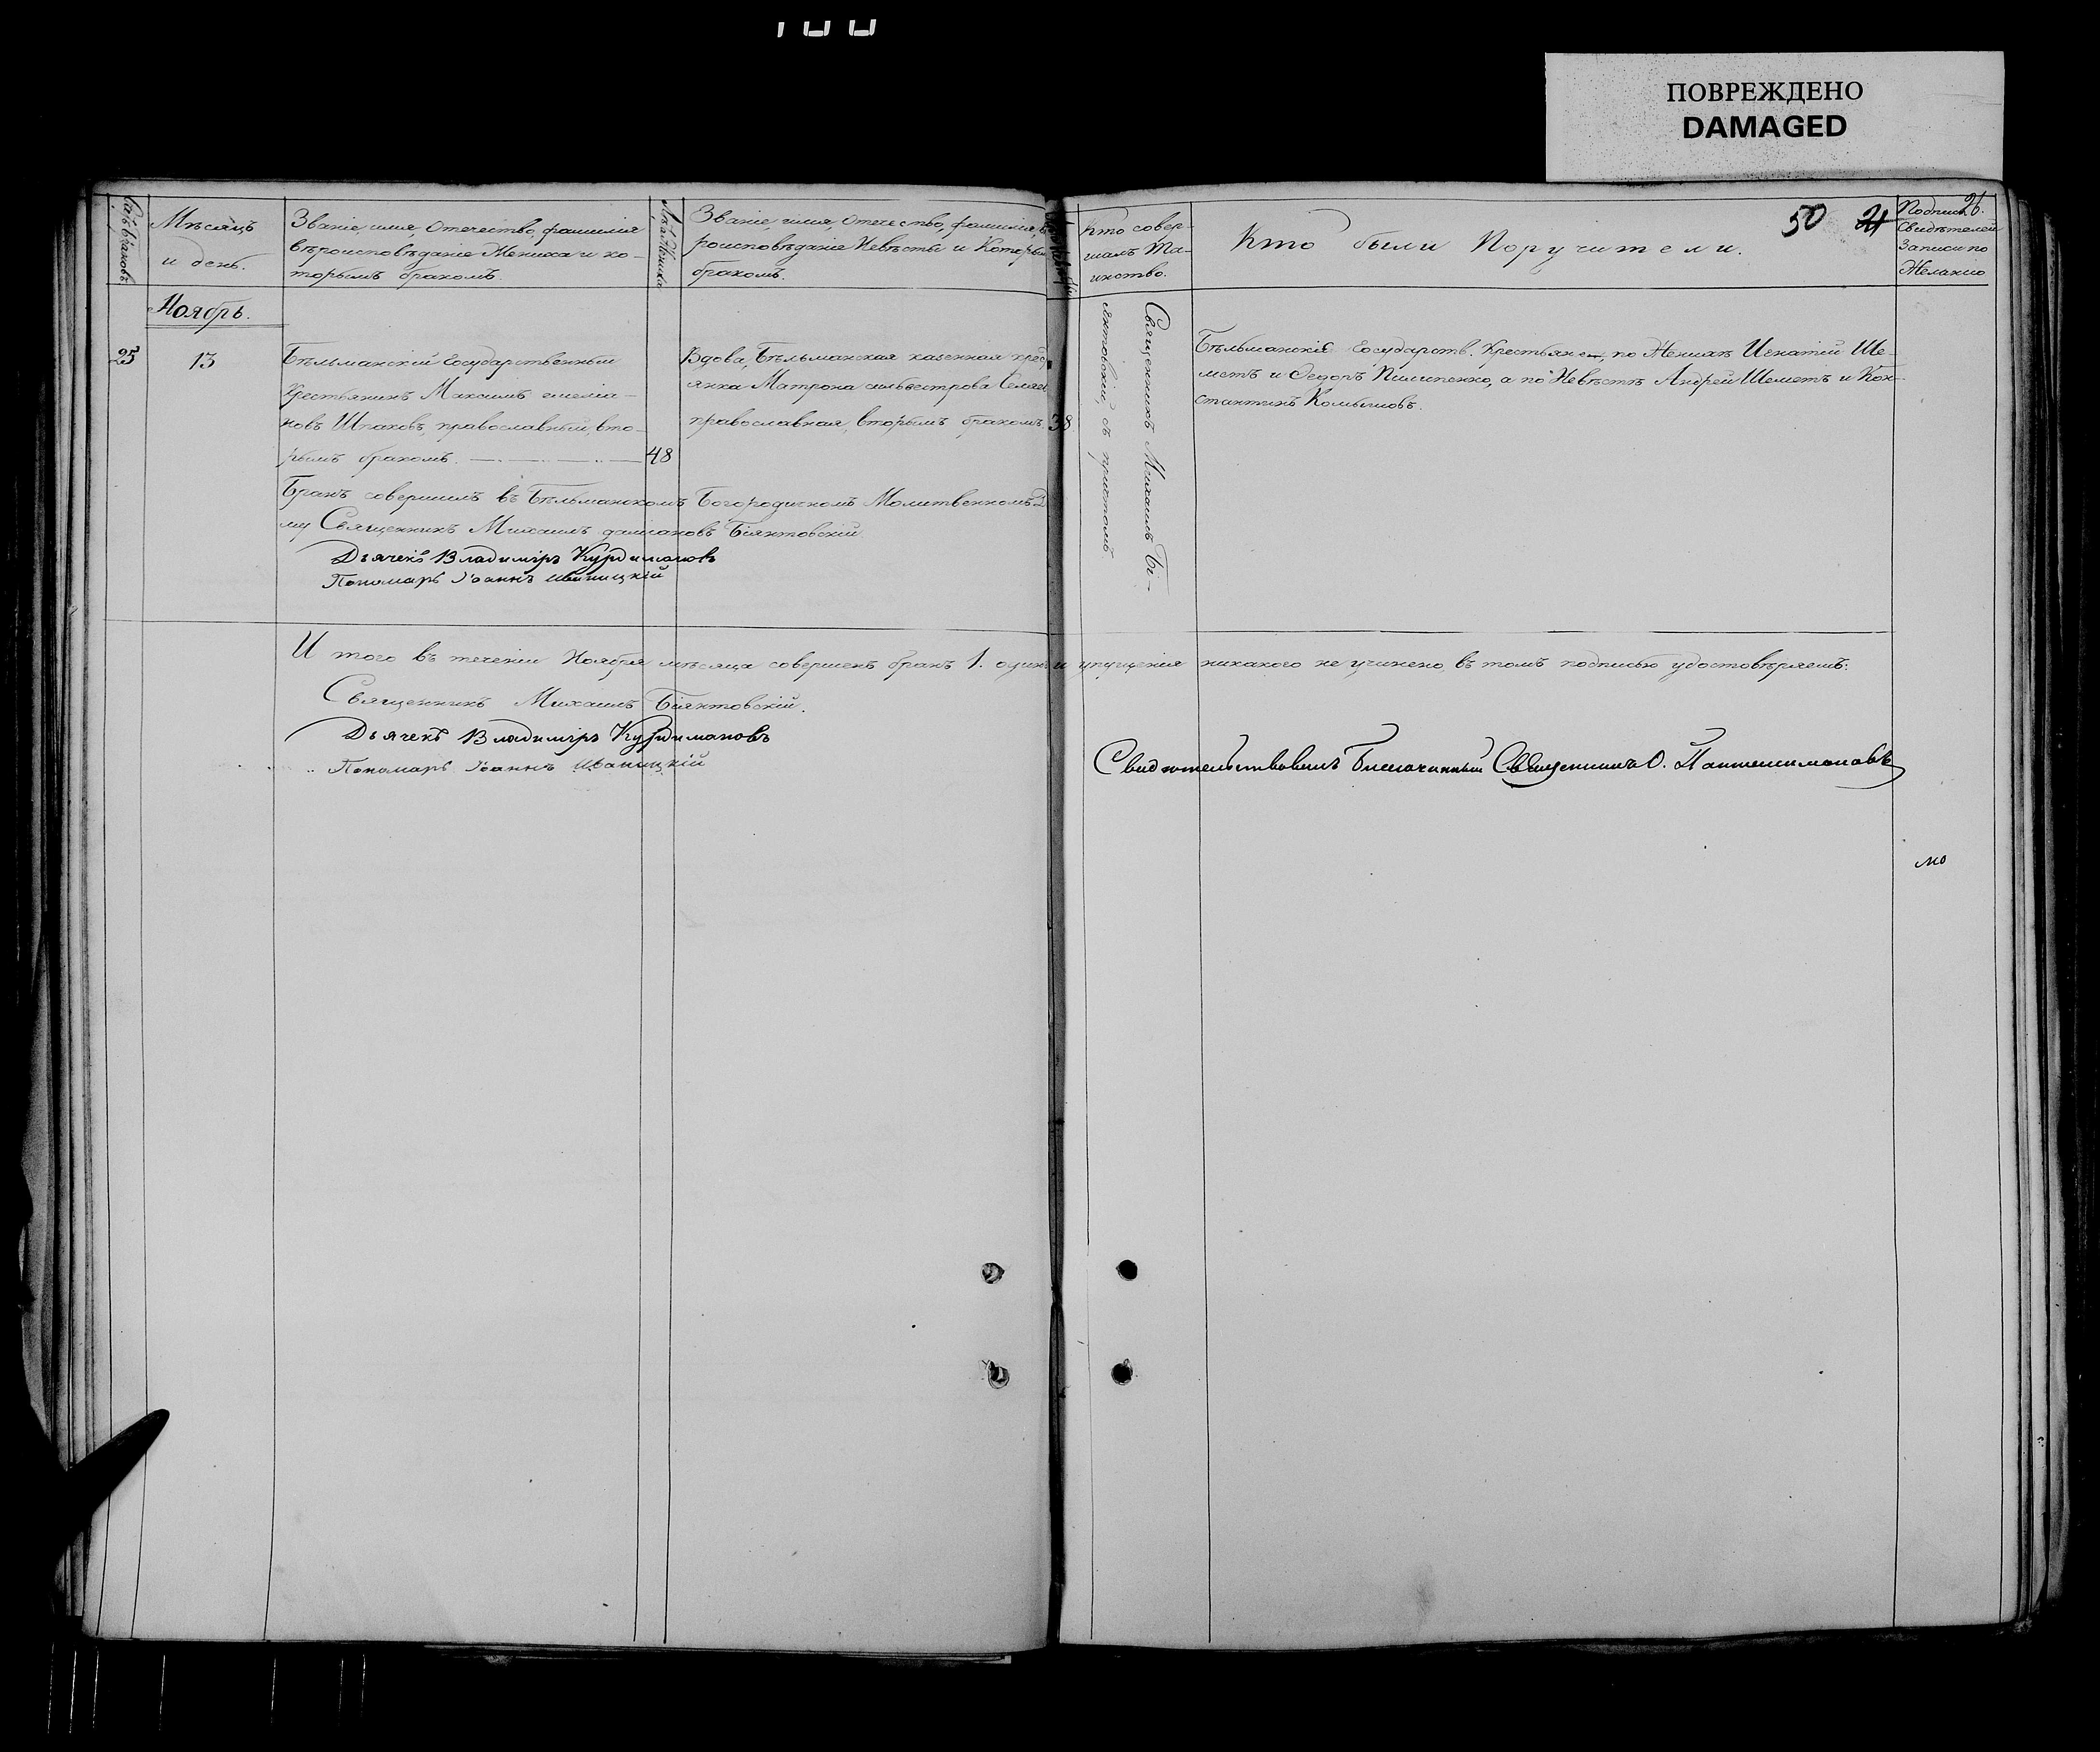 ПОВРЕЖДЕНО
DAMAGED
Мѣсяцъ
и день.
Званіе, имя, Отечество, фамилія
вѣроисповѣданіе Жениха и ко-
торымъ бракомъ.
Лѣта Жениха
Званіе, имя, Отечество, фамилія, вѣ
роисповѣданіе Невѣсты и Которым
бракомъ.
Кто совер-
шалъ Та-
инство.
Кто были Поручители.
50 21
26.
Подпись
Свидѣтелей
Записи по
Желанію
Ноябрь.
25
13
Бѣльманскій Государственный
Крестьянинъ Максимъ емеліа-
новъ Шпаковъ, православный, вто-
рымъ бракомъ.
48
Вдова, Бѣльманская казенная крест
янка Матрона сильвестрова
православная, вторымъ бракомъ.
38
Священникъ Михаилъ Бі-
янтовскій, съ притомъ
Бѣльманскіе Государств. Крестьяне, по Женихѣ Игнатій Ше-
метъ и Федоръ Пилипенко, а по Невѣстѣ Андрей Шеметъ и Кон-
стантинъ
Бракъ совершилъ въ Бѣльманскомъ Богородичномъ Молитвенномъ До
му Священникъ Михаилъ даміановъ Біянтовскій
Дьячекъ Владиміръ Курдимановъ
Пономарь Іоаннъ Иваницкій
И того въ теченіи Ноября мѣсяца совершенъ бракъ 1. одинъ и упущенія никакого не учинено, въ томъ подписью удостовѣряемъ:
Священникъ Михаилъ Біянтовскій.
Дьячекъ Владиміръ Курдимановъ
Пономарь Іоаннъ Иваницкій
Свидѣтельствовалъ Благочинный Священникъ О. Пантелимоновъ
мо